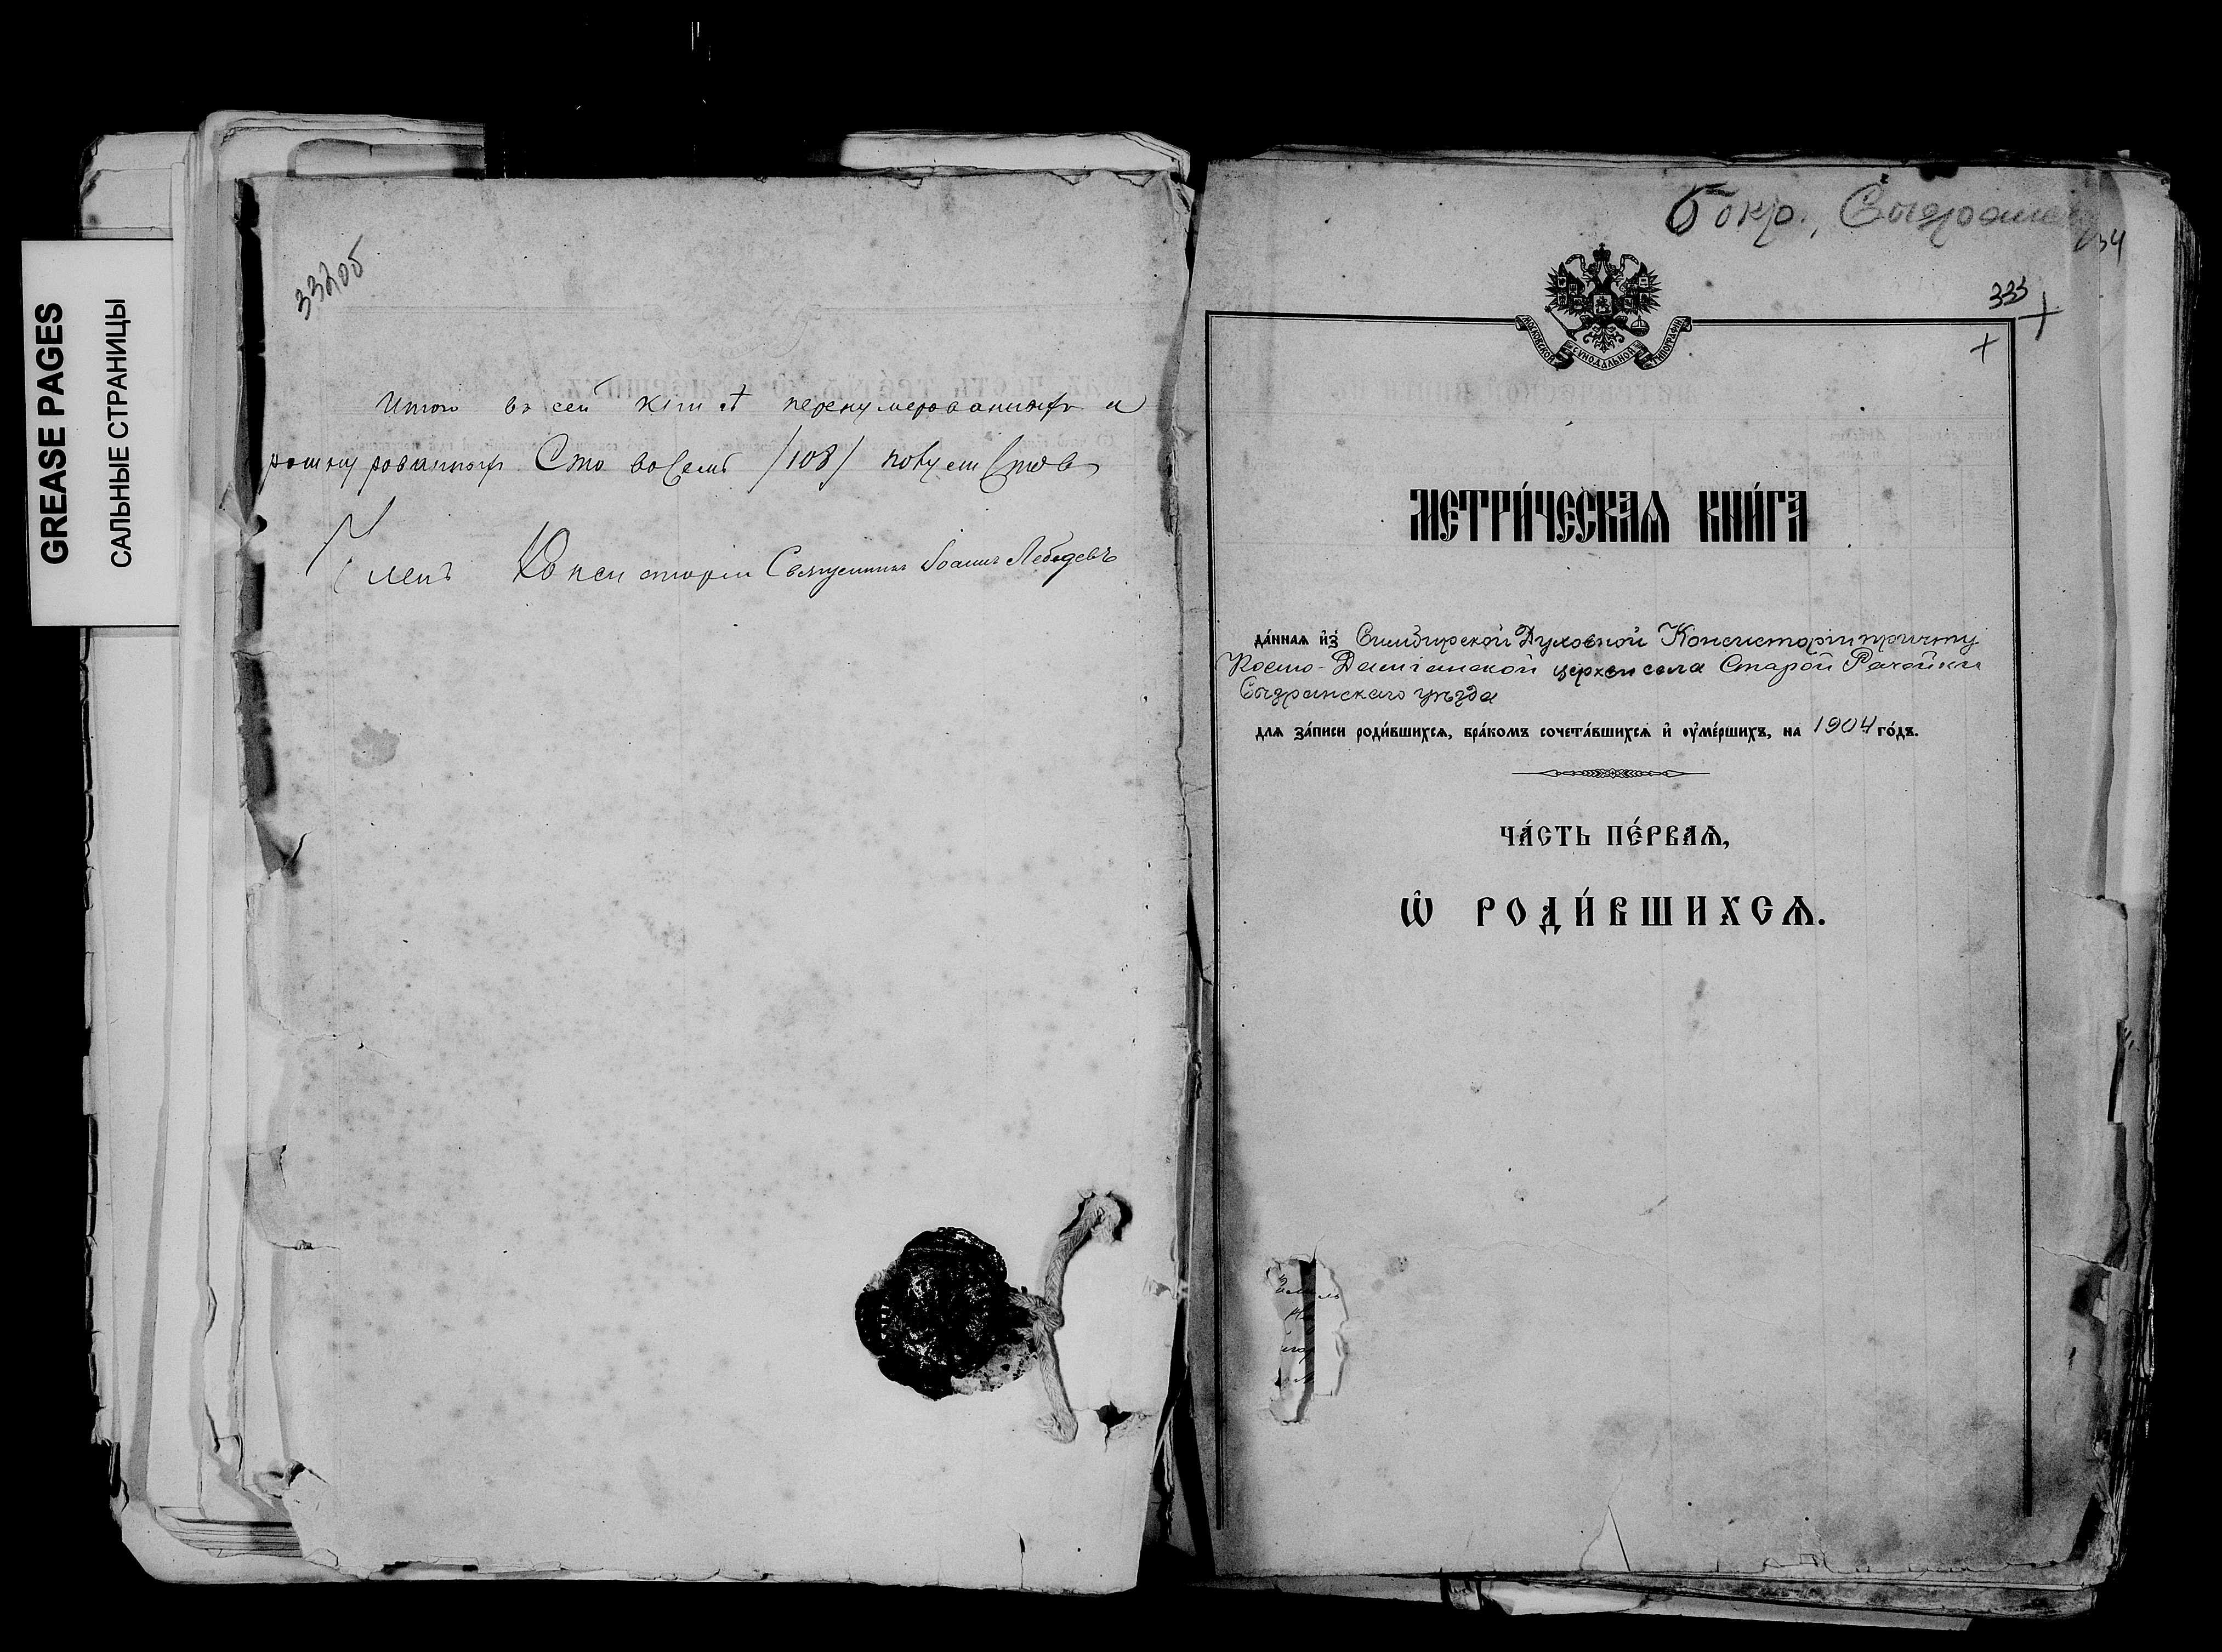 GREASE PAGES
САЛЬНЫЕ СТРАНИЦЫ
332об
Итого въ сей книгѣ перенумерованныхъ и
рошнурованныхъ Сто восемь /108/ полулистовъ
Членъ Консисторіи Священникъ Іоаннъ Лебедевъ
6 окр., Сызранск
34
333
МОСКОВСКОЙ СѴНОДАЛЬНОЙ ТИПОГРАФІИ
МЕТРИ́ЧЕСКАѦ КНИ́ГА
да́ннаѧ и҆з̾ Симбирской Духовной Консисторіи причту
Космо-Даміанской церкви села Старой Рачейки
Сызранскаго уѣзда
длѧ за́писи роди́вшихсѧ, бра́комъ сочета́вшихсѧ и҆ ᲂу҆ме́ршихъ, на 1904 го́дъ.
ЧА́СТЬ ПЕ́РВАѦ,
Ѽ РОДИ́ВШИХСѦ.